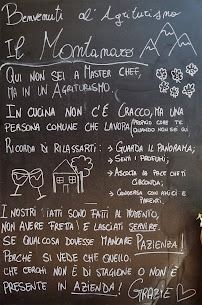 Benvenuti all'Agriturismo
Il Montanaro
Qui non sei a Master Chef,
ma in un Agriturismo.
In cucina non c'è Cracco, ma una
persona comune che lavora proprio come te
quando non sei qui
Ricorda di rilassarti: → Guarda il panorama;
→ Senti i profumi;
→ Ascolta la pace che ti
circonda;
→ Condividi con amici e
parenti.
I nostri piatti sono fatti al momento,
non avere fretta! E lasciati servire.
Se qualcosa dovesse mancare Pazienza!
Perchè si vede che quello
che cerchi non è di stagione o non è
presente in azienda! Grazie